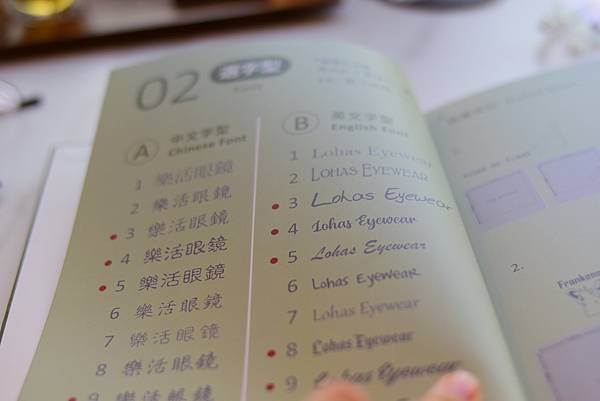 02 選字型
A 中文字型
Chinese Font
1 樂活眼鏡
2 樂活眼鏡
3 樂活眼鏡
4 樂活眼鏡
5 樂活眼鏡
6 樂活眼鏡
7 樂活眼鏡
8 樂活眼鏡
9 樂活眼鏡
B 英文字型
English Font
1 Lohas Eyewear
2 LOHAS EYEWEAR
3 Lohas Eyewear
4 Lohas Eyewear
5 Lohas Eyewear
6 Lohas Eyewear
7 Lohas Eyewear
8 Lohas Eyewear
9 Lohas Eyewear
2.